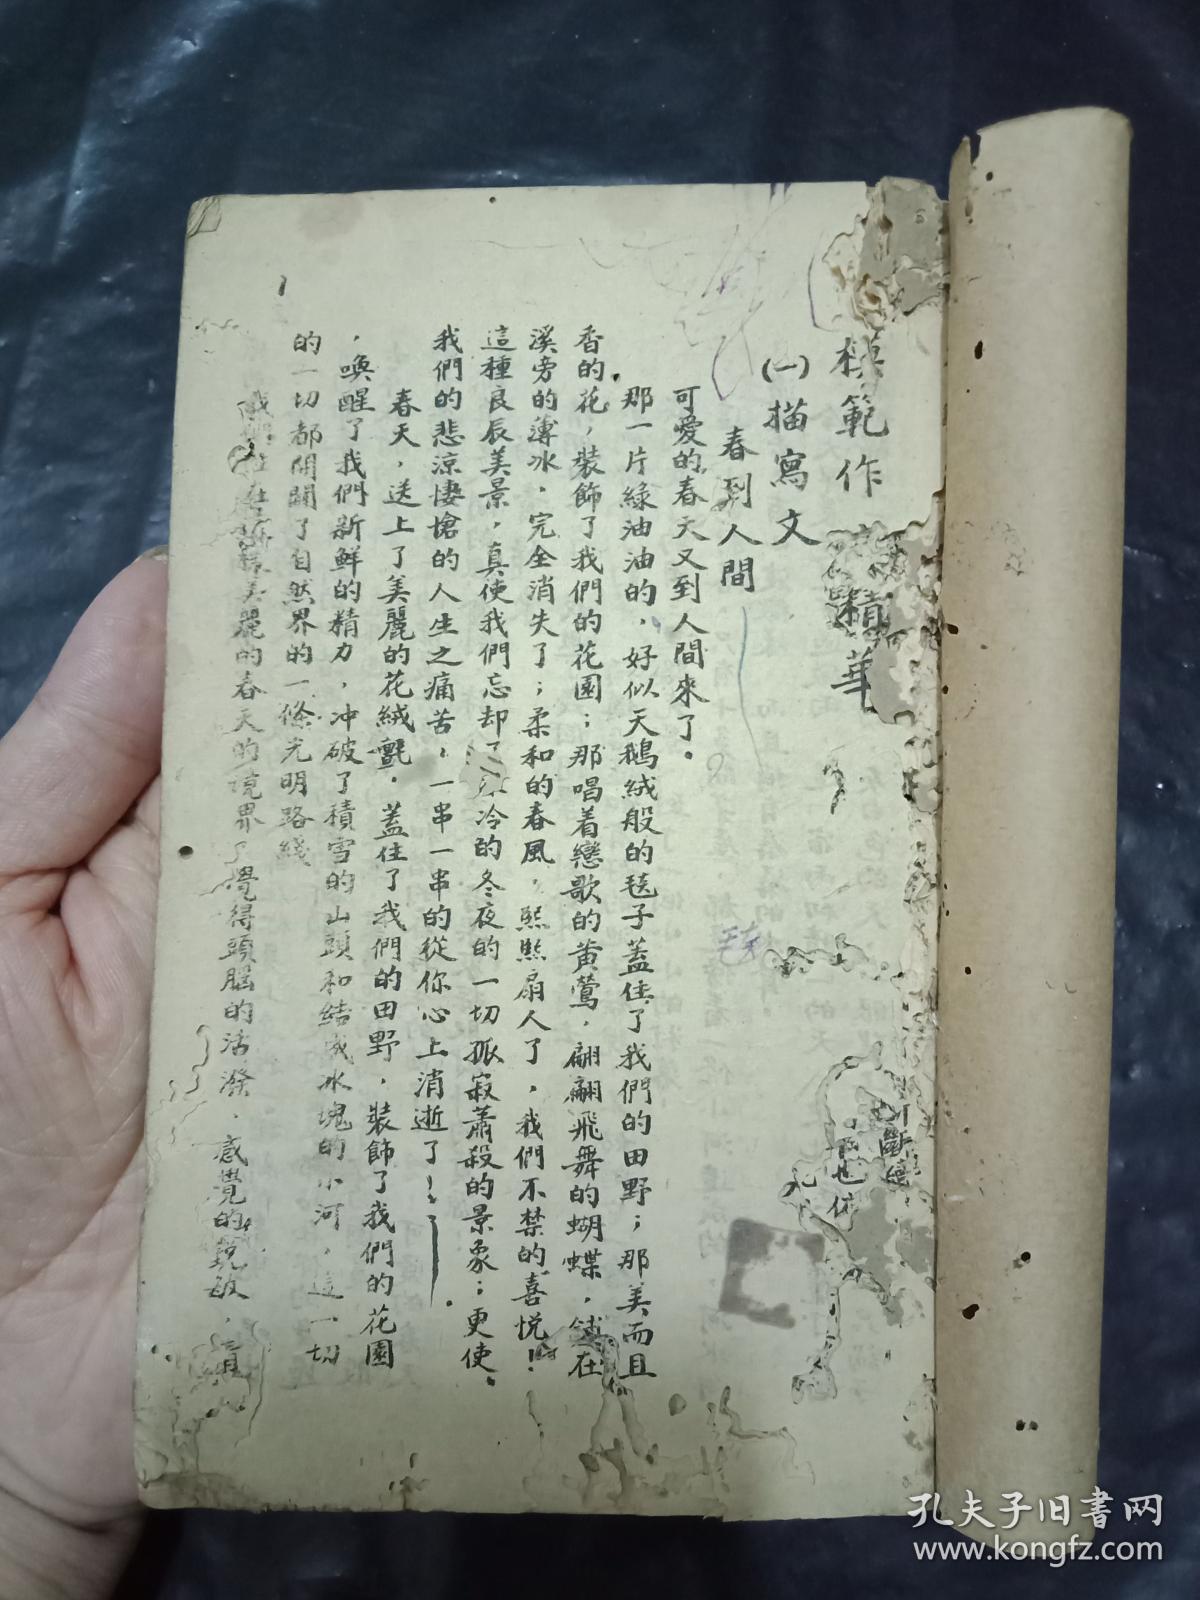 模範作 精華
(一)描寫文
春到人間
可愛的春天又到人間來了。
那一片綠油油的，好似天鵝絨般的毯子蓋住了我們的田野；那美而且
香的花，裝飾了我們的花園；那唱着戀歌的黄鶯，翩翩飛舞的蝴蝶， 在
溪旁的薄冰，完全消失了；柔和的春風，熙熙扇人了，我們不禁的喜悅！
這種良辰美景，真使我們忘却了 冷的冬夜的一切孤寂蕭殺的景象；更使
我們的悲涼悽愴的人生之痛苦，一串一串的從你心上消逝了！
春天，送上了美麗的花絨氈，蓋住了我們的田野，裝飾了我們的花園
，喚醒了我們新鮮的精力，冲破了積雪的山頭和結成冰塊的小河，這一切
的一切都開闢了自然界的一條光明路綫
美麗的春天的境界了覺得頭腦的活潑，感覺的銳敏，
孔夫子旧书网
www.kongfz.com